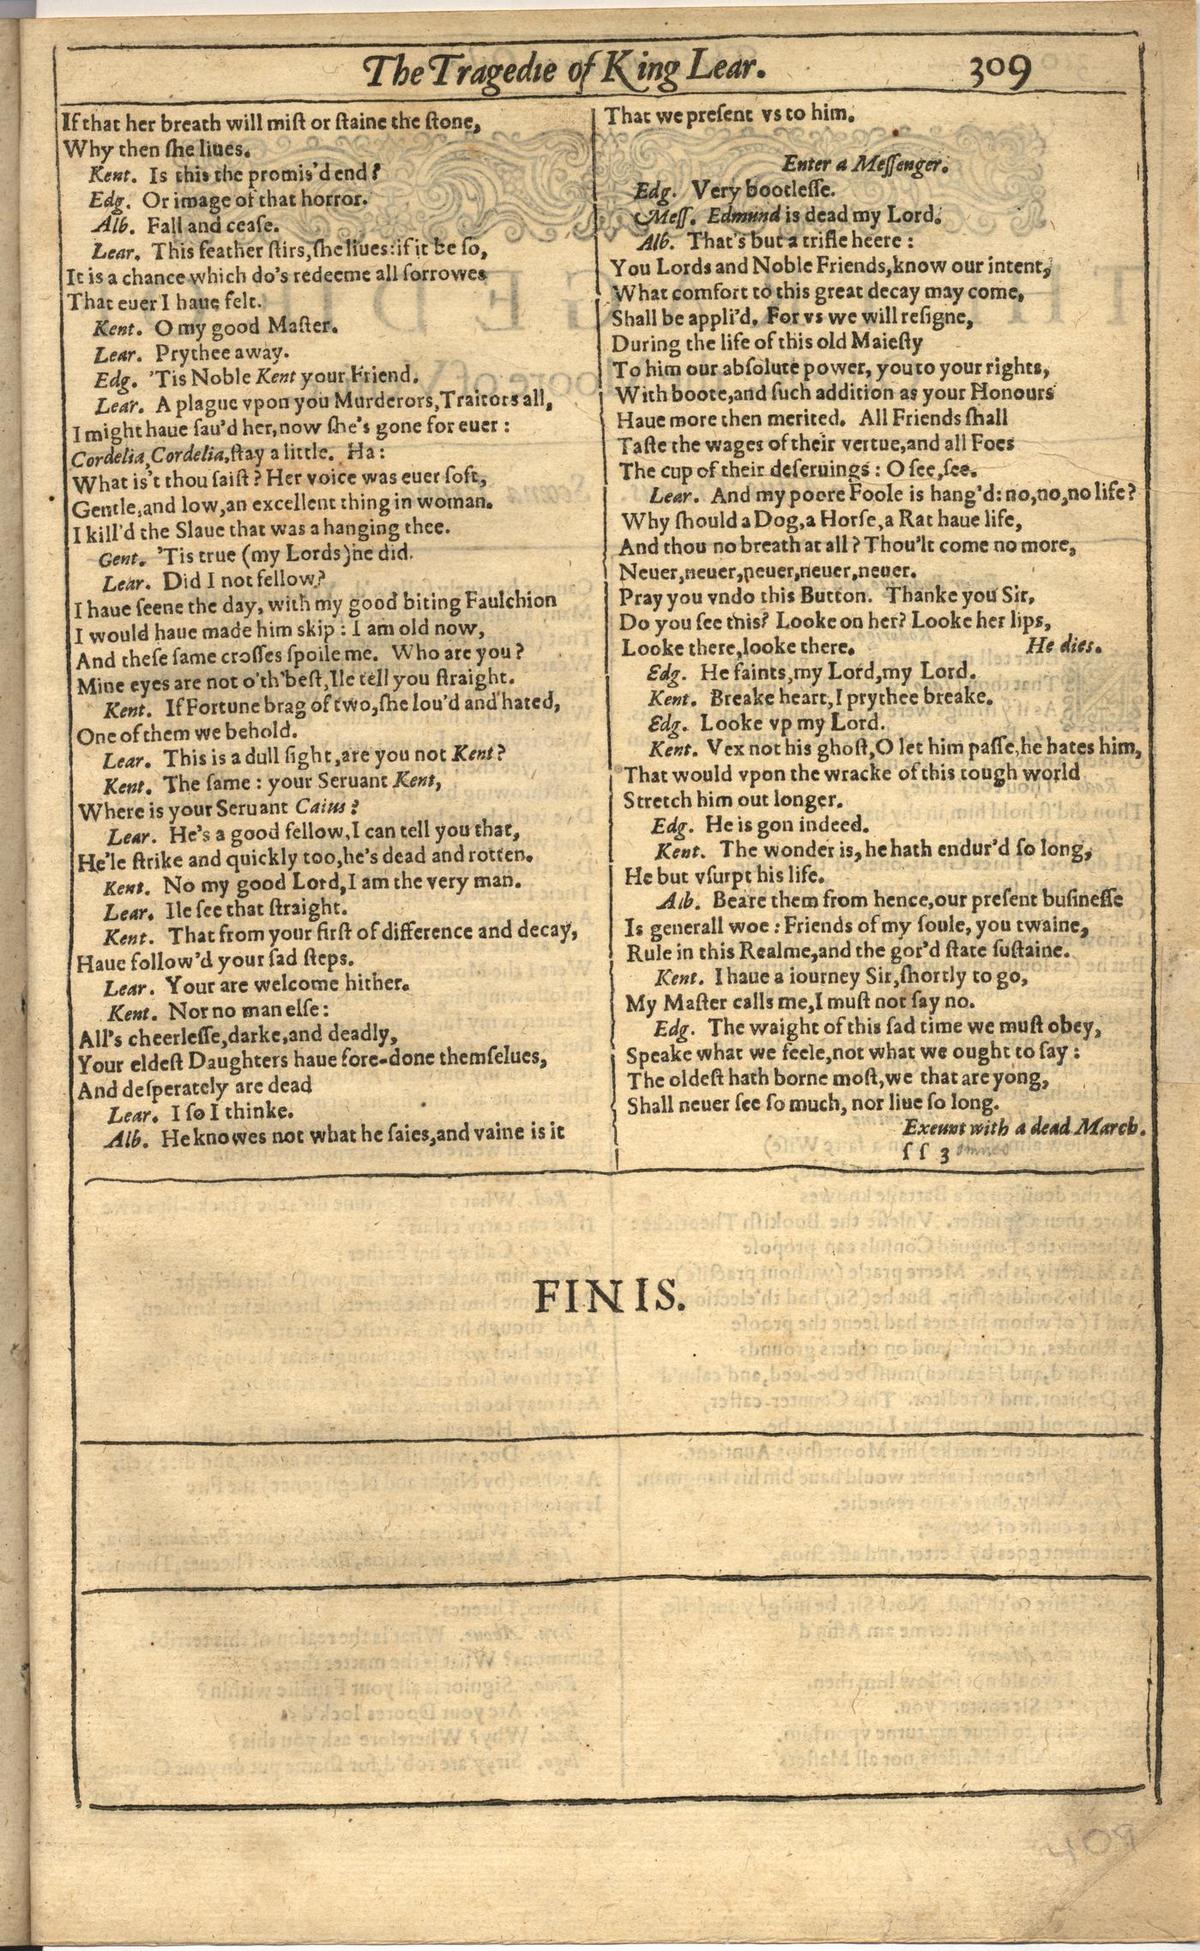 The Tragedie of King Lear. 309
If that her breath will miſt or ſtaine the ſtone,
Why then ſhe liues.
Kent. Is this the promis'd end?
Edg. Or image of that horror.
Alb. Fall and ceaſe.
Lear. This feather ſtirs, ſhe liues: if it be ſo,
It is a chance which do's redeeme all ſorrowes
That euer I haue felt.
Kent. O my good Maſter.
Lear. Prythee away.
Edg. 'Tis Noble Kent your Friend.
Lear. A plague vpon you Murderors, Traitors all,
I might haue ſau'd her, now ſhe's gone for euer:
Cordelia, Cordelia, ſtay a little. Ha:
What is't thou ſaiſt? Her voice was euer ſoft,
Gentle, and low, an excellent thing in woman.
I kill'd the Slaue that was a hanging thee.
Gent. 'Tis true (my Lords) he did.
Lear. Did I not fellow?
I haue ſeene the day, with my good biting Faulchion
I would haue made him skip: I am old now,
And theſe ſame croſſes ſpoile me. Who are you?
Mine eyes are not o'th'beſt, Ile tell you ſtraight.
Kent. If Fortune brag of two, ſhe lou'd and hated,
One of them we behold.
Lear. This is a dull ſight, are you not Kent?
Kent. The ſame: your Seruant Kent,
Where is your Seruant Caius?
Lear. He's a good fellow, I can tell you that,
He'le ſtrike and quickly too, he's dead and rotten.
Kent. No my good Lord, I am the very man.
Lear. Ile ſee that ſtraight.
Kent. That from your firſt of difference and decay,
Haue follow'd your ſad ſteps.
Lear. Your are welcome hither.
Kent. Nor no man elſe:
All's cheerleſſe, darke, and deadly,
Your eldeſt Daughters haue fore-done themſelues,
And deſperately are dead
Lear. I ſo I thinke.
Alb. He knowes not what he ſaies, and vaine is it
That we preſent vs to him.
Enter a Meſſenger.
Edg. Very bootleſſe.
Meſſ. Edmund is dead my Lord.
Alb. That's but a trifle heere:
You Lords and Noble Friends, know our intent,
What comfort to this great decay may come,
Shall be appli'd. For vs we will reſigne,
During the life of this old Maieſty
To him our abſolute power, you to your rights,
With boote, and ſuch addition as your Honours
Haue more then merited. All Friends ſhall
Taſte the wages of their vertue, and all Foes
The cup of their deſeruings: O ſee, ſee.
Lear. And my poore Foole is hang'd: no, no, no life?
Why ſhould a Dog, a Horſe, a Rat haue life,
And thou no breath at all? Thou'lt come no more,
Neuer, neuer, neuer, neuer, neuer.
Pray you vndo this Button. Thanke you Sir,
Do you ſee this? Looke on her? Looke her lips,
Looke there, looke there. He dies.
Edg. He faints, my Lord, my Lord.
Kent. Breake heart, I prythee breake.
Edg. Looke vp my Lord.
Kent. Vex not his ghoſt, O let him paſſe, he hates him,
That would vpon the wracke of this tough world
Stretch him out longer.
Edg. He is gon indeed.
Kent. The wonder is, he hath endur'd ſo long,
He but vſurpt his life.
Alb. Beare them from hence, our preſent buſineſſe
Is generall woe: Friends of my ſoule, you twaine,
Rule in this Realme, and the gor'd ſtate ſuſtaine.
Kent. I haue a iourney Sir, ſhortly to go,
My Maſter calls me, I muſt not ſay no.
Edg. The waight of this ſad time we muſt obey,
Speake what we feele, not what we ought to ſay:
The oldeſt hath borne moſt, we that are yong,
Shall neuer ſee ſo much, nor liue ſo long.
Exeunt with a dead March.
ſſ 3
FINIS.